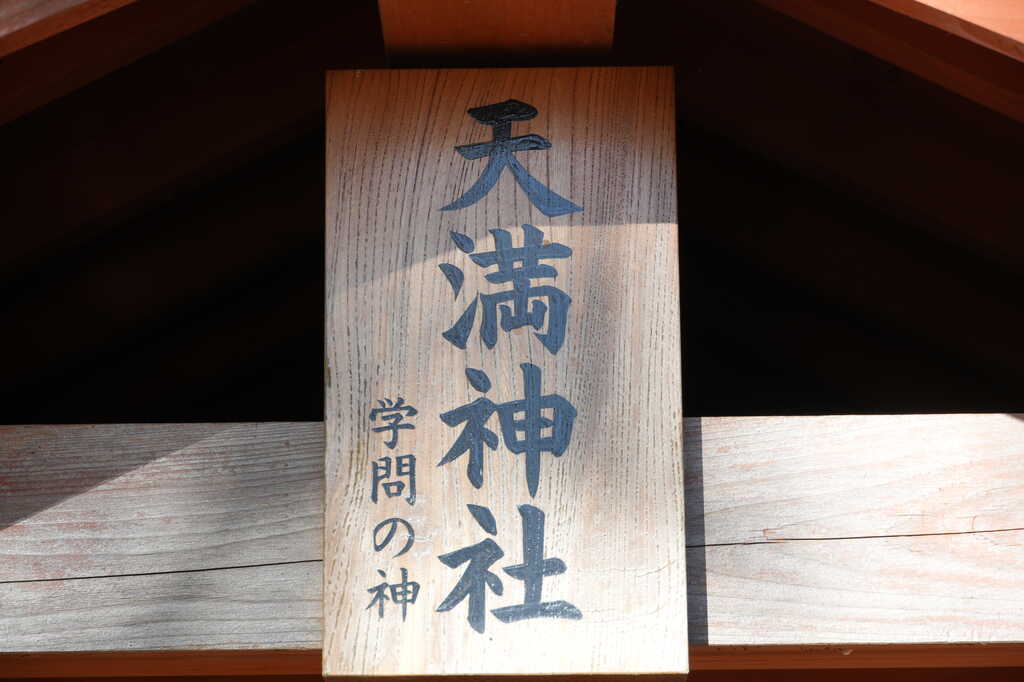 天満神社
学問の神